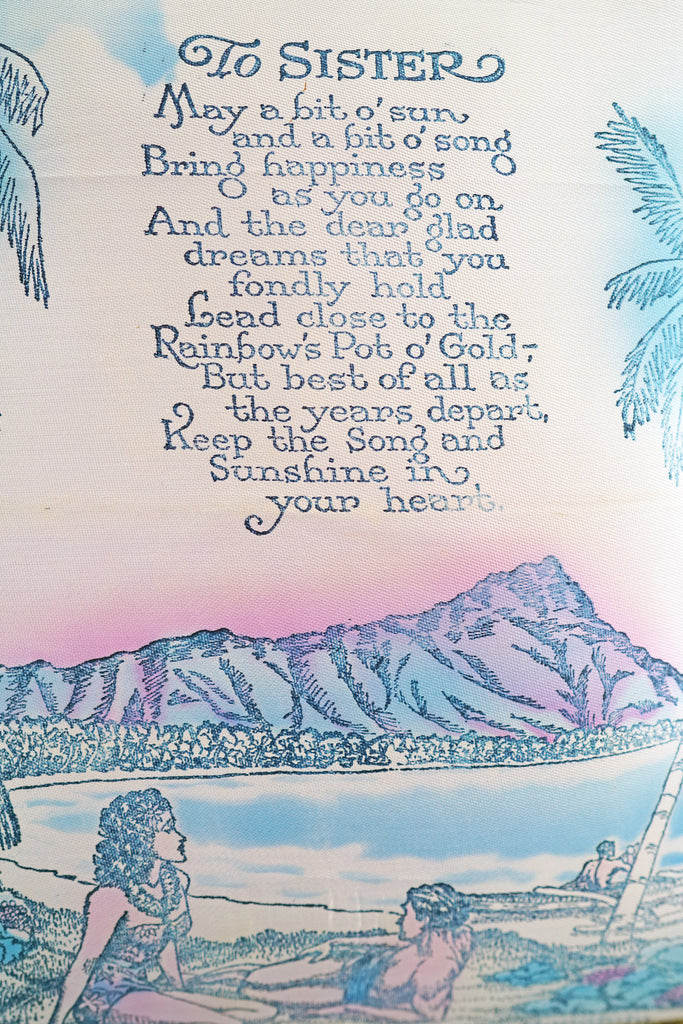 To SISTER
May a bit o' sun
and a bit o' song
Bring happiness
as you go on
And the dear glad
dreams that you
fondly hold
Lead close to the
Rainbow's Pot o' Gold;
But best of all as
the years depart,
Keep the Song and
Sunshine in
your heart.